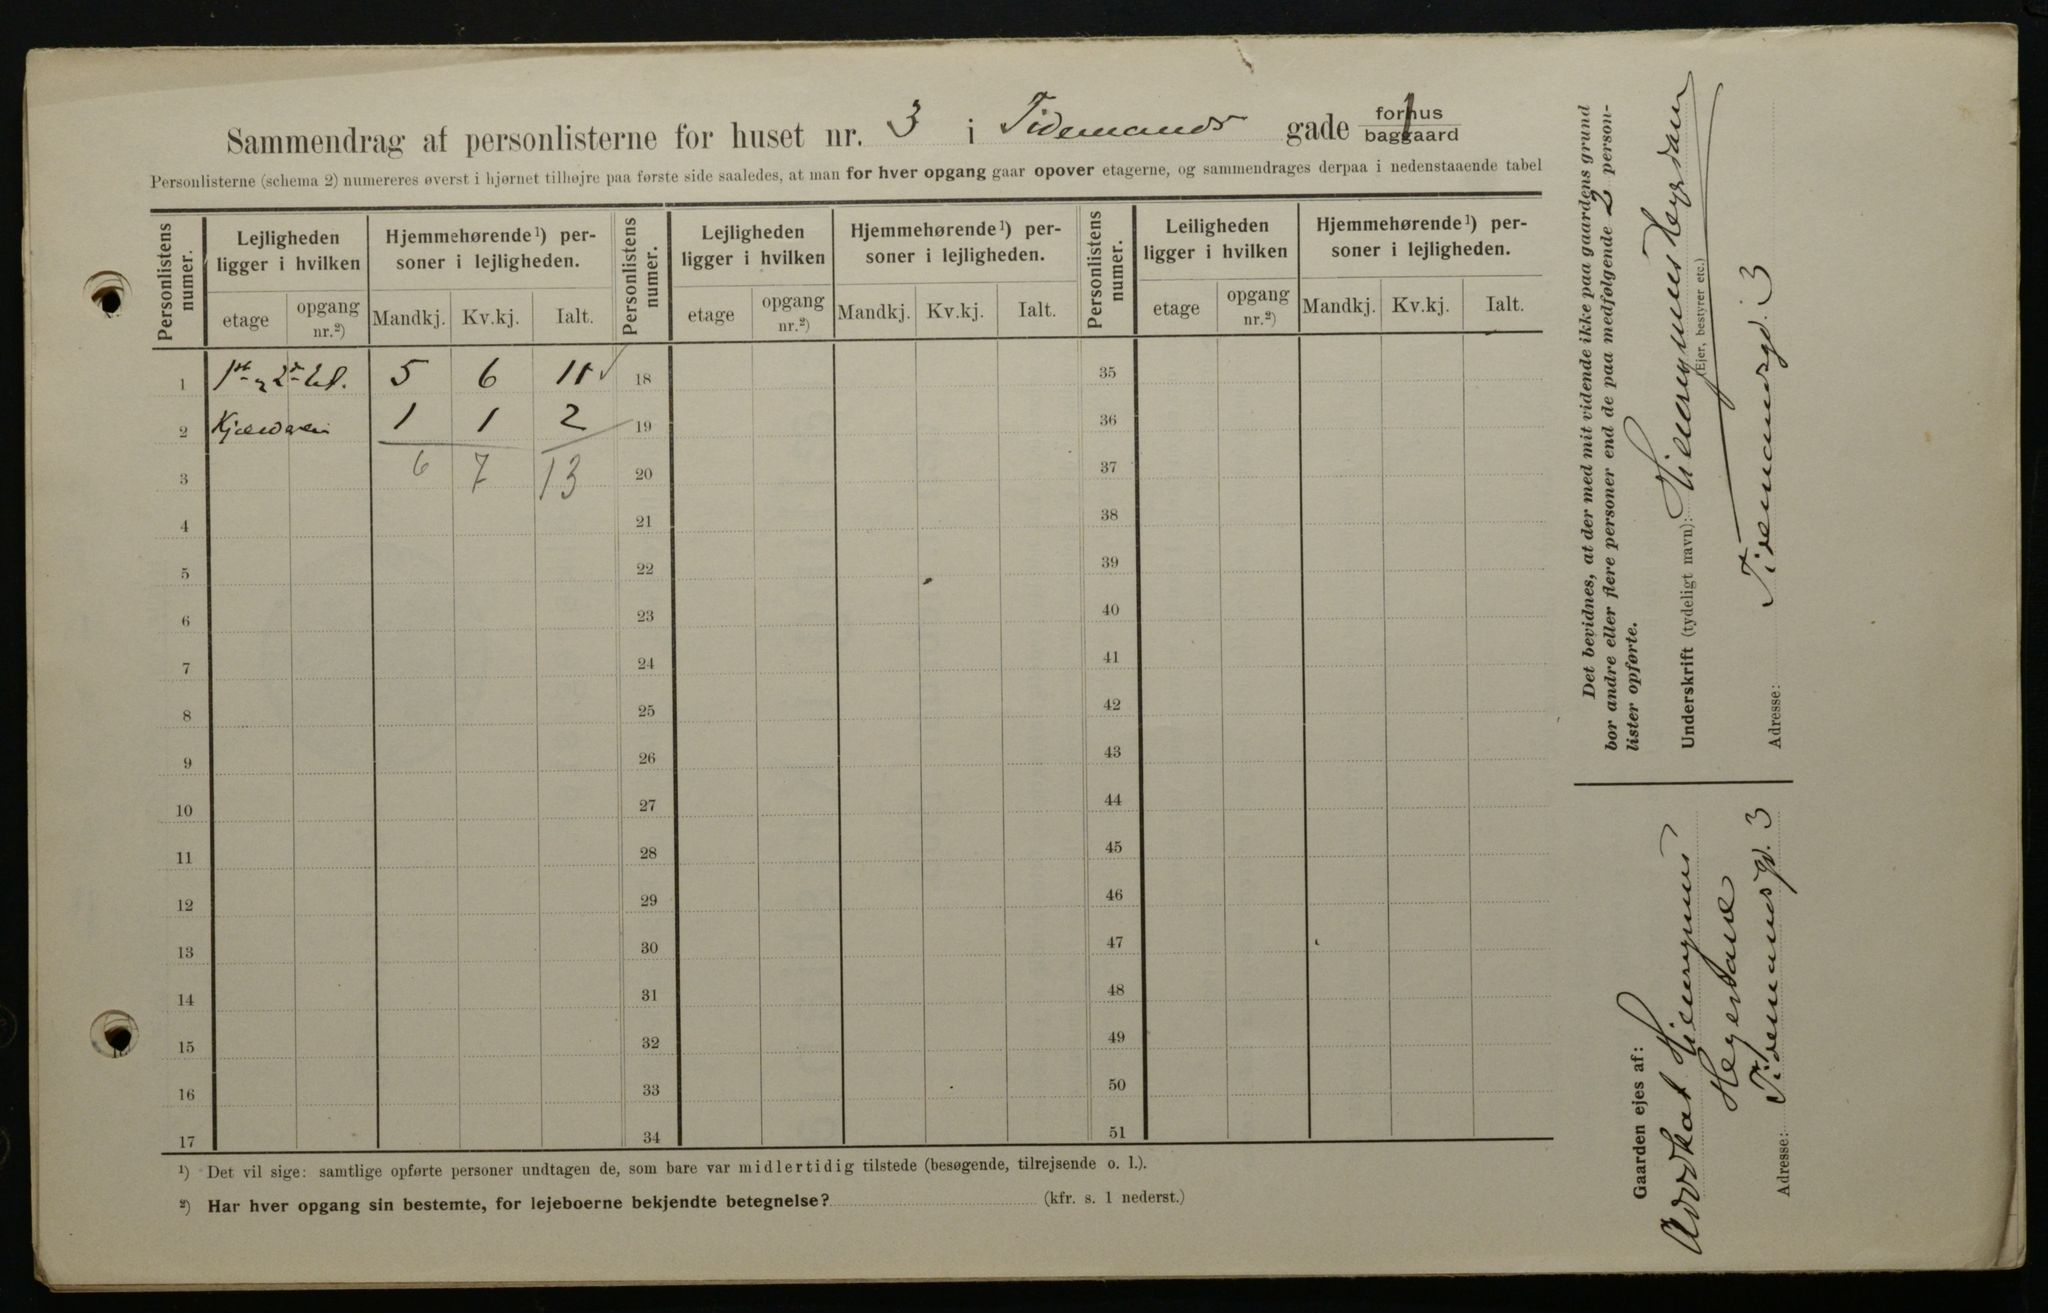 Sammendrag af personlisterne for huset nr. 3 i Tidemands gade forhus baggaard
Personlisterne (schema 2) numereres øverst i hjørnet tilhøjre paa første side saaledes, at man for hver opgang gaar opover etagerne, og sammendrages derpaa i nedenstaaende tabel
Personlistens numer.
Lejligheden ligger i hvilken
Hjemmehørende¹) personer i lejligheden.
Personlistens numer.
Lejligheden ligger i hvilken
Hjemmehørende¹) personer i lejligheden.
Personlistens numer.
Leiligheden ligger i hvilken
Hjemmehørende¹) personer i lejligheden.
etage opgang nr.²) Mandkj. Kv.kj. Ialt. etage opgang nr.²) Mandkj. Kv.kj. Ialt. etage opgang nr.²) Mandkj. Kv.kj. Ialt.
1 1ste 2den Et. 5 6 11 18 35
2 Kjælderen 1 1 2 19 36
3 6 7 13 20 37
4 21 38
5 22 39
6 23 40
7 24 41
8 25 42
9 26 43
10 27 44
11 28 45
12 29 46
13 30 47
14 31 48
15 32 49
16 33 50
17 34 51
¹) Det vil sige: samtlige opførte personer undtagen de, som bare var midlertidig tilstede (besøgende, tilrejsende o. l.).
²) Har hver opgang sin bestemte, for lejeboerne bekjendte betegnelse? (kfr. s. 1 nederst.)
Det bevidnes, at der med mit vidende ikke paa gaardens grund
bor andre eller flere personer end de paa medfølgende 2 person-
lister opførte.
Underskrift (tydeligt navn): Hieronymus Heyerdahl
(Ejer, bestyrer etc.)
Adresse: Tidemandsgd. 3
Gaarden ejes af:
Advokat Hieronymus
Heyerdahl
Adresse: Tidemandsgd. 3